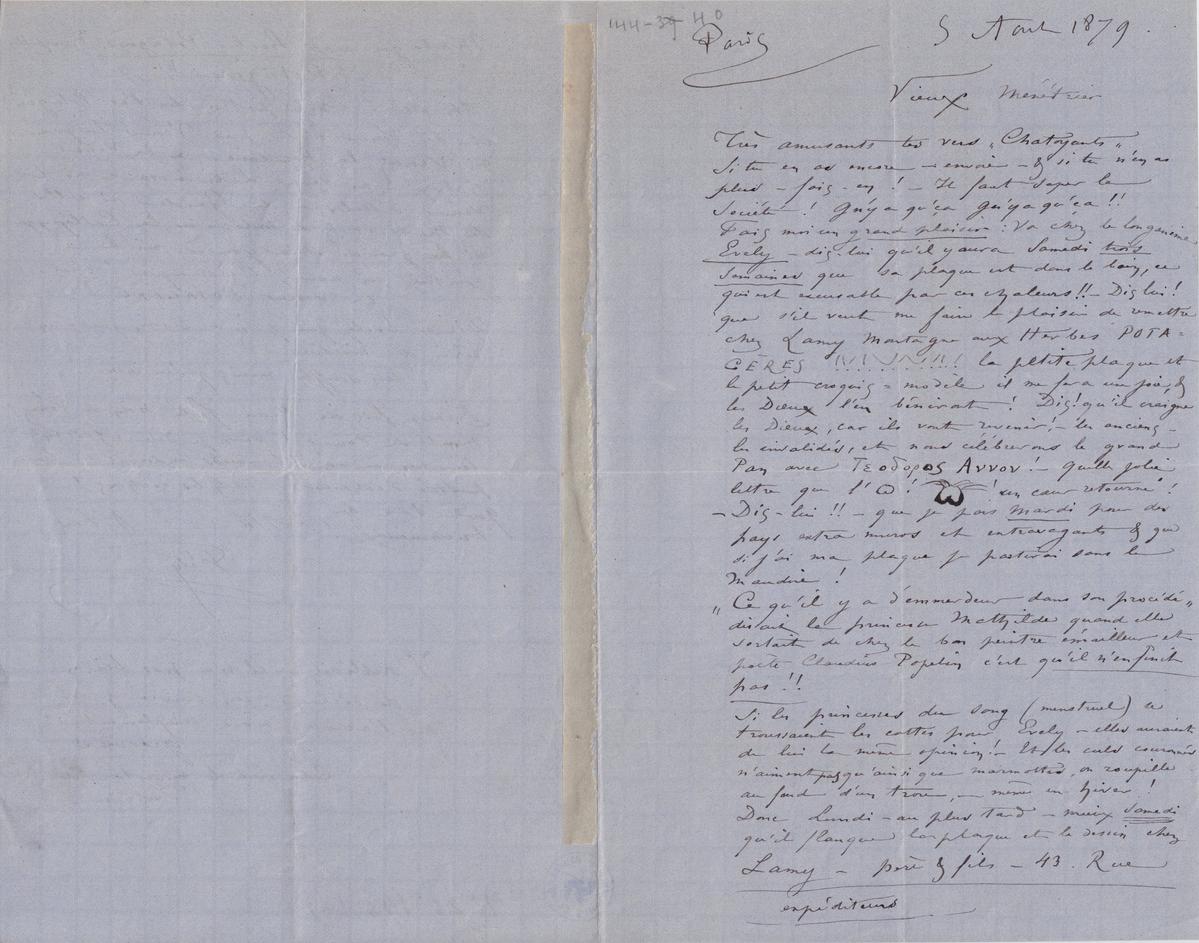 144-39 40
Paris 5 Aout 1879.
Vieux Ménétrier
Très amusants tes vers „Chatoyants„
Si tu en as encore – envoie – & si tu n'en as
plus – fais-en ! – Il faut saper la
Société ! Gn'y a qu'ça Gn'ya qu'ça !!
Fais moi un grand plaisir : Va chez le longanime
Evely – dis-lui qu'il y aura Samedi trois
Semaines que sa plaque est dans le bain, ce
qui est excusable par ces chaleurs !! – Dis lui !
que s'il veut me faire le plaisir de remettre
chez Lamy Montagne aux Herbes POTA-
GÈRES la petite plaque et
le petit croquis = modèle il me fera une joie, &
les Dieux l'en béniront ! Dis ! qu'il craigne
les Dieux, car ils vont revenir ! – les anciens –
les invalidés, et nous célébrerons le grand
Pan avec Τεοδορος Αννον ! – Quelle jolie
lettre que l'ω ! ω ! un cœur retourné !
– Dis-lui !! – que je pars Mardi pour des
pays extra muros et extravagants & que
si j'ai ma plaque je partirai sans le
maudire !
„Ce qu'il y a d'emmerdeur dans son procédé„
disait la princesse Mathilde quand elle
sortait de chez le bon peintre émailleur et
poète Claudius Popelin c'est qu'il n'en finit
pas !!
Si les princesses du sang (menstruel) se
troussaient les cottes pour Evely – elles auraient
de lui la même opinion ! – Et les culs couronnés
n'aiment pas qu'ainsi que marmottes, on roupille
au fond d'un trou, – même en hiver !
Donc Lundi – au plus tard – mieux Samedi
qu'il flanque la plaque et le dessin chez
Lamy – père & fils – 43. Rue
expéditeurs